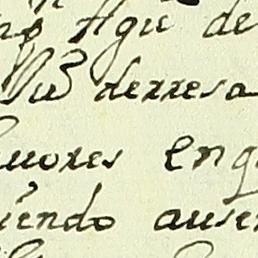 Agu de
derresa
uores eng
iendo ausen